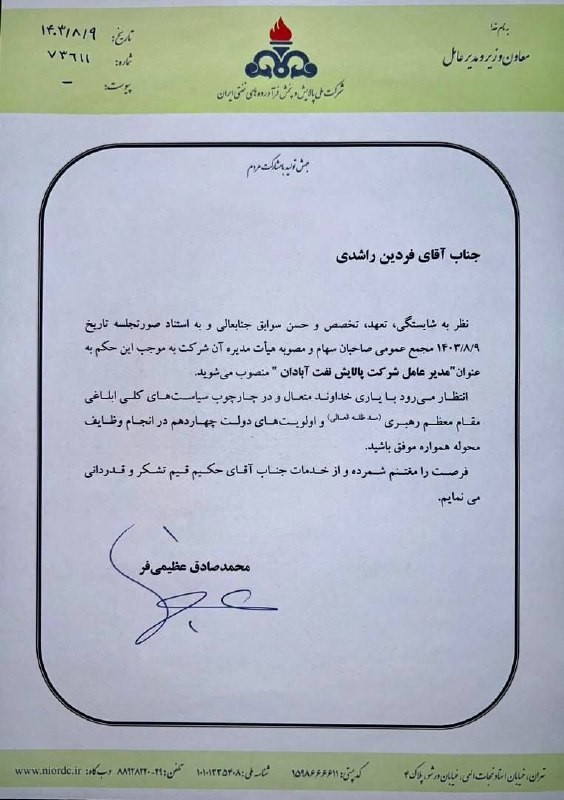 به نام خدا
معاون وزیر و مدیر عامل
شرکت ملی پالایش و پخش فرآورده های نفتی ایران
تاریخ: ۱۴۰۳/۸/۹
شماره: ۷۳۶۱۱
پیوست: –
جهش تولید با مشارکت مردم
جناب آقای فردین راشدی
نظر به شایستگی، تعهد، تخصص و حسن سوابق جنابعالی و به استناد صورتجلسه تاریخ
۱۴۰۳/۸/۹ مجمع عمومی صاحبان سهام و مصوبه هیأت مدیره آن شرکت به موجب این حکم به
عنوان "مدیر عامل شرکت پالایش نفت آبادان " منصوب می‌شوید.
انتظار می‌رود با یاری خداوند متعال و در چارچوب سیاست‌های کلی ابلاغی
مقام معظم رهبری (مد ظله العالی) و اولویت‌های دولت چهاردهم در انجام وظایف
محوله همواره موفق باشید.
فرصت را مغتنم شمرده و از خدمات جناب آقای حکیم قیم تشکر و قدردانی
می نمایم.
محمدصادق عظیمی‌فر
تهران، خیابان استاد نجات الهی، خیابان ورشو، پلاک ۴ کدپستی: ۱۵۹۸۶۶۶۶۱۱ شناسه ملی: ۱۰۱۰۱۲۳۵۴۰۸ تلفن: ۲۹-۸۸۹۲۸۲۲۰ وب گاه: www.niordc.ir